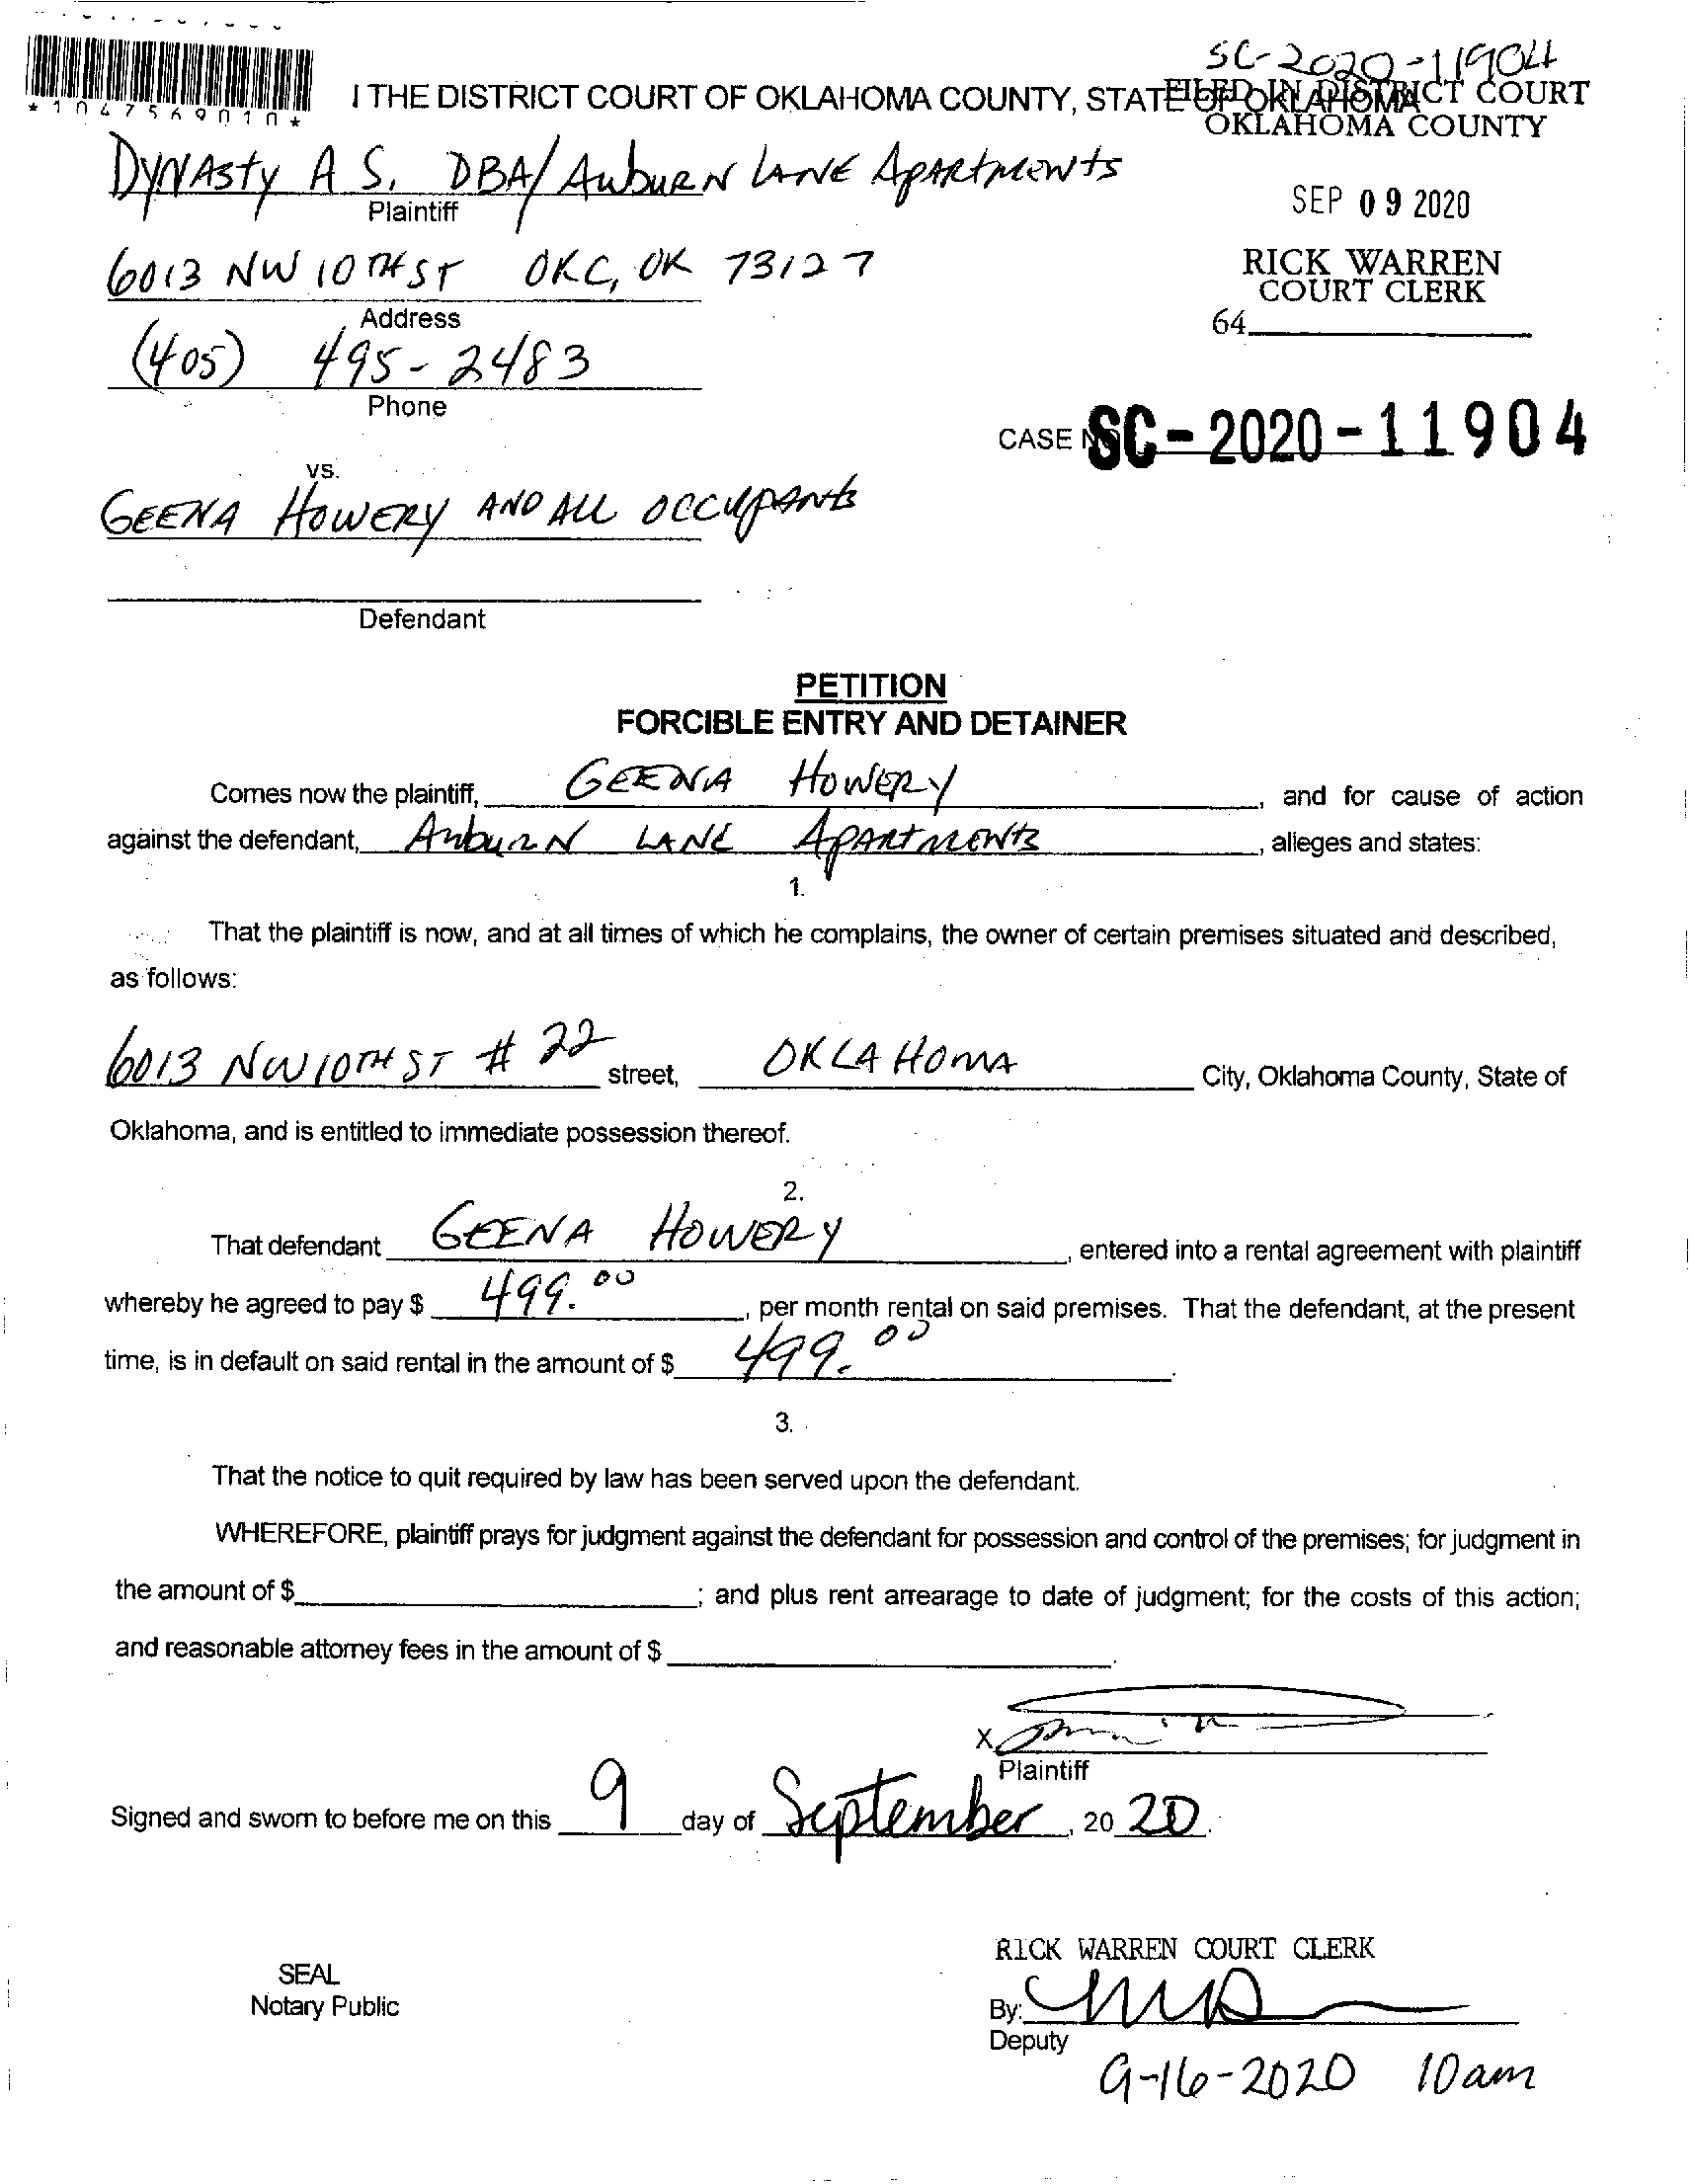 SC-2020-11904
*1047569010*
I THE DISTRICT COURT OF OKLAHOMA COUNTY, STATE OF OKLAHOMA
FILED IN DISTRICT COURT
OKLAHOMA COUNTY
DYNASTY A S. DBA/ AUBURN LANE APARTMENTS
Plaintiff
SEP 09 2020
6013 NW 10TH ST OKC, OK 73127
Address
RICK WARREN
COURT CLERK
64
(405) 495-2483
Phone
CASE NO SC-2020-11904
vs.
GEENA HOWERY AND ALL OCCUPANTS
Defendant
PETITION
FORCIBLE ENTRY AND DETAINER
Comes now the plaintiff, GEENA HOWERY, and for cause of action
against the defendant, AUBURN LANE APARTMENTS, alleges and states:
1.
That the plaintiff is now, and at all times of which he complains, the owner of certain premises situated and described,
as follows:
6013 NW 10TH ST # 22 street, OKLAHOMA City, Oklahoma County, State of
Oklahoma, and is entitled to immediate possession thereof.
2.
That defendant GEENA HOWERY, entered into a rental agreement with plaintiff
whereby he agreed to pay $ 499.00, per month rental on said premises. That the defendant, at the present
time, is in default on said rental in the amount of $ 499.00.
3.
That the notice to quit required by law has been served upon the defendant.
WHEREFORE, plaintiff prays for judgment against the defendant for possession and control of the premises; for judgment in
the amount of $ ; and plus rent arrearage to date of judgment; for the costs of this action;
and reasonable attorney fees in the amount of $ .
X
Plaintiff
Signed and sworn to before me on this 9 day of September, 20 20.
RICK WARREN COURT CLERK
SEAL
Notary Public
By:
Deputy
9-16-2020 10am